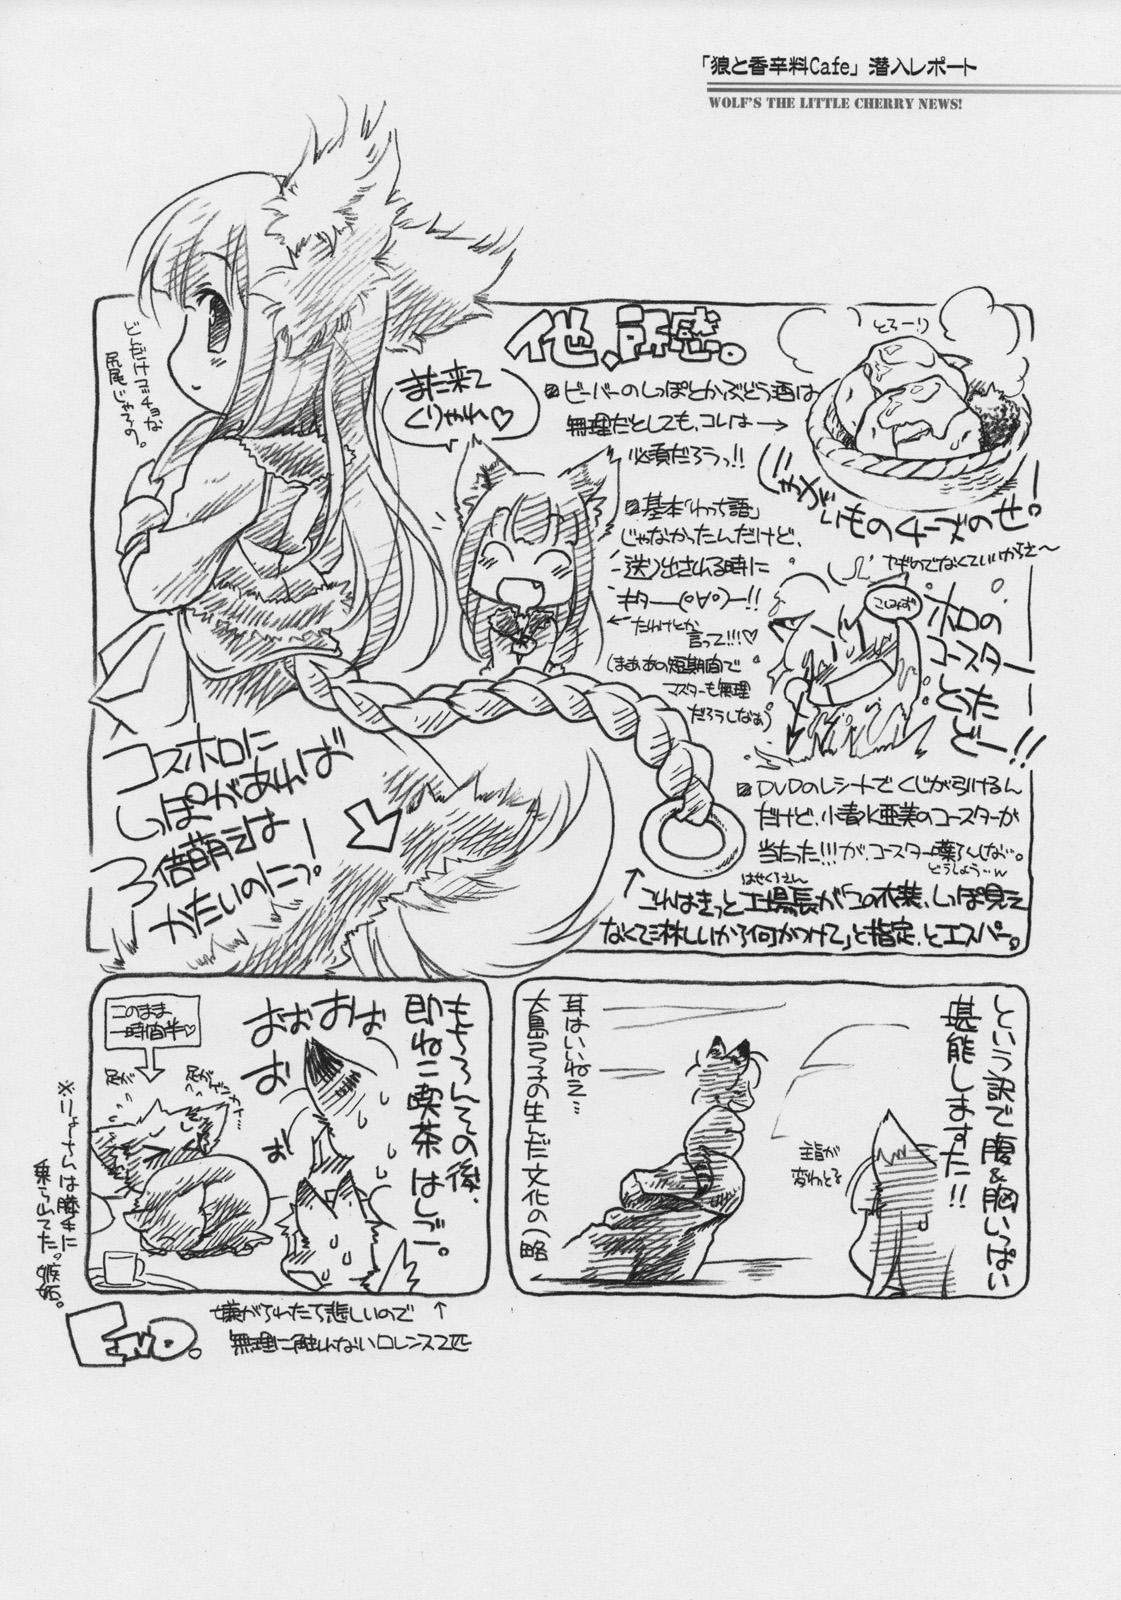 「狼と香辛料Cafe」潜入レポート
WOLF'S THE LITTLE CHERRY NEWS!
他、所感。
また来て
くりゃれ♡
どんだけマッチョな
尻尾じゃろの。
とろーり
■ビーバーのしっぽとかぶどう酒は
無理だとしても、コレは→
必須だろうっ!!
じゃがいものチーズのせ
ヤギのでなくていいからさ〜
■基本「わっち語」
じゃなかったんだけど、
送り出される時に
キター(゜∀゜)ー!!
←たわけとか
言って!!!♡
(まぁあの短期間で
マスターも無理
だろうしなぁ)
ホロの
コースター
とった
どー!!
■DVDのレシートでくじが引けるん
だけど、小清水亜美のコースターが
当たった!!!が、コースター
どうしよう…w
コスホロに
しっぽがあれば
3倍萌えは
かたいのにっ!
はせくらさん
↑これはきっと工場長が「この衣装、しっぽ見え
なくて淋しいから何かつけて」と指定、とエスパー。
という訳で腹&胸いっぱい
堪能しました!!
主旨が
変わっとる
耳はいいねぇ…
大島弓子の生んだ文化の(略
もちろんその後、
即ねこ喫茶はしご。
おぉおぉ
おぉ
ぉ
このまま
一時間半♡
足が
※りょーさんは膝チに
乗られてた。嫉妬。
嫌がられたら悲しいので ↑
無理に触れないロレンス2匹
END.